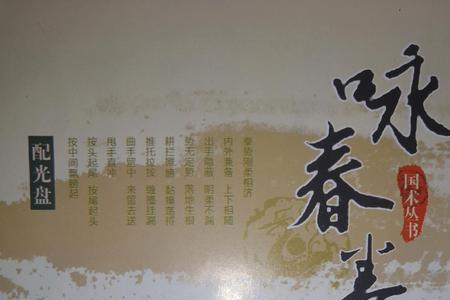 咏春拳
国术丛书
拳势刚柔相济
内外兼备 上下相随
出手隐蔽 柔不漏
势无定势 落地生根
耕拦 黏摸荡捋
推托拉 缠撞挂漏
曲手留中 来留去送
甩手直冲
按头起尾 按尾起头
按中间飘膀起
配光盘